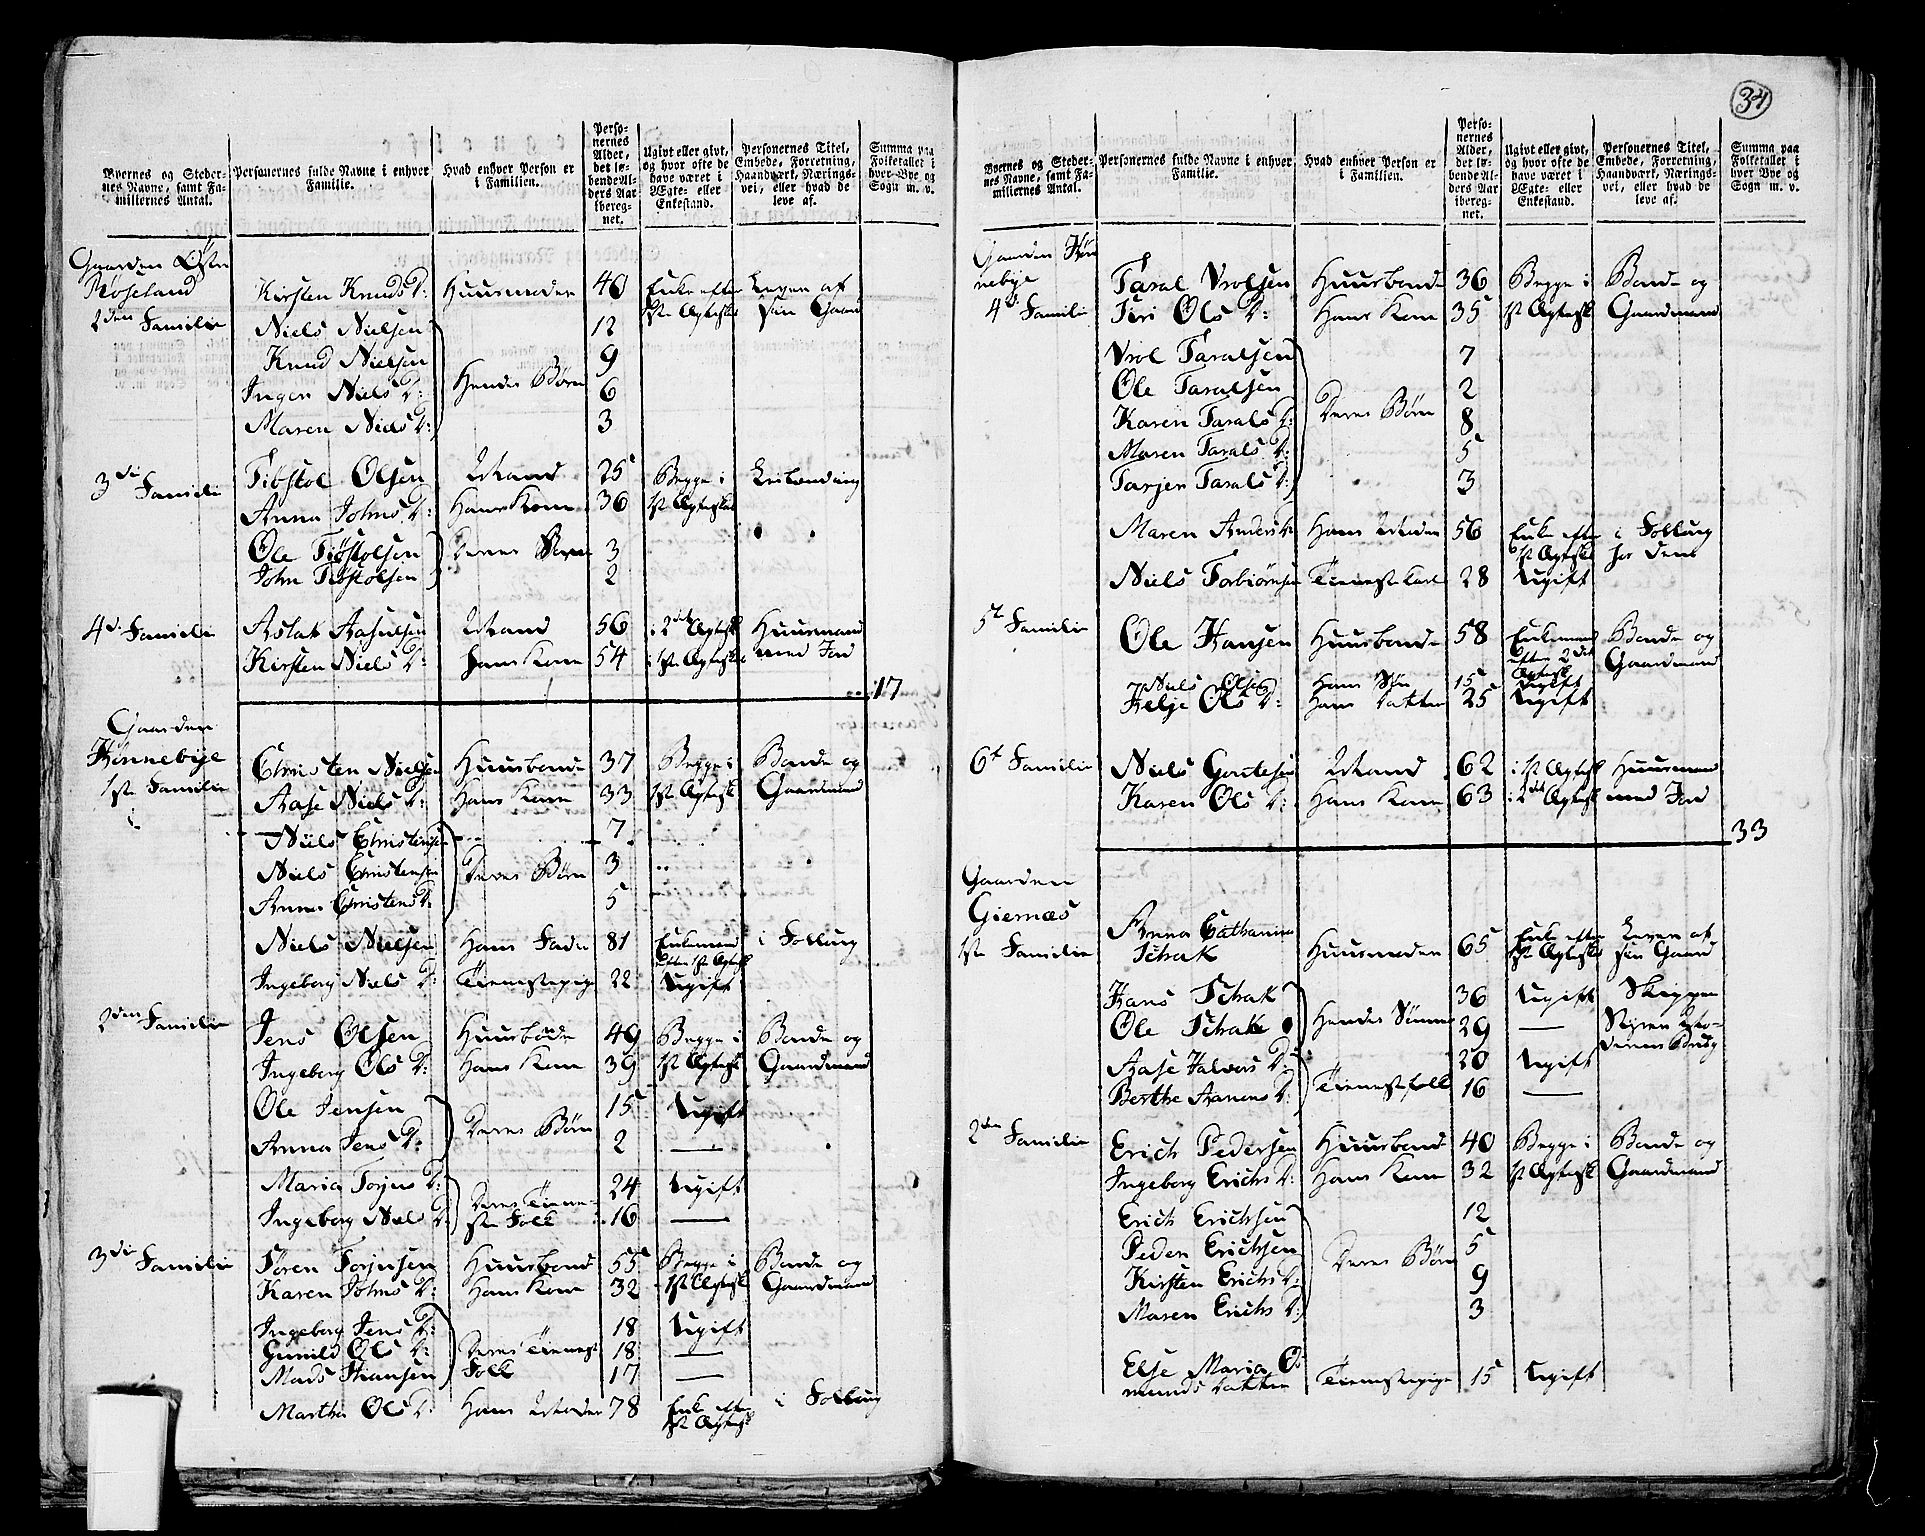 34
Byernes og Steder-
nes Navne, samt Fa-
miliernes Antal.
Personernes fulde Navne i enhver
Familie.
Hvad enhver Person er
i Familien.
Perso-
nernes
Alder,
det lø-
bende Al-
ders Aar
iberegnet-
net.
Ugivt eller givt,
og hvor ofte de
have været i
Ægte- eller
Enkestand.
Personernes Titel,
Embede, Forretning,
Haandværk, Nærings-
vei, eller hvad de
leve af.
Summa paa
Folketallet i
hver Bye og
Sogn m. v.
Gaarden Østre
Røseland
2den Familie
Kirsten Knuds D: Huusmoder 40 Enke efter Lever af
1ste Ægtesk sin Gaard
Niels Nielsen 12
Knud Nielsen 9
Hendes Børn
Inger Niels D: 6
Maren Niels D: 3
3die Familie Tiøstol Olsen Mand 25 Begge i
Anna Johns D: Hans Kone 36 1ste Ægteskab
Ole Tiøstolsen Deres Børn 3
John Tiøstolsen 2
4de Familie Aslak Aasulsen Mand 56 i 2det Ægtesk Huusmand
Kirsten Niels D: Hans Kone 54 i 1ste Ægtesk med Jord
17
Gaarden
Hønnebye
1ste Familie
Christen Nielsen Huusbonde 37 Begge i Bonde og
Aase Niels D: Hans Kone 33 1ste Ægtesk Gaardmand
Niels Christensen 7
Niels Christensen Deres Børn 3
Anne Christens D: 5
Niels Nielsen Hans Fader 81 Enkemand i Folloug
efter 1ste Ægtesk
Ingeborg Niels D: Tienestepige 22 Ugift
2den Familie Jens Olsen Huusbonde 49 Begge i Bonde og
Ingeborg Ols D: Hans Kone 39 1ste Ægtesk Gaardmand
Ole Jensen 15 Ugift
Deres Børn
Anna Jens D: 2 —
Maria Torjus D: 24 Ugift
Deres Tiene-
Ingeborg Niels D: ste Folk 16 —
3die Familie Søren Torjusen Huusbond 55 Begge i Bonde og
Karen Johns D: Hans Kone 32 1ste Ægtesk Gaardmand
Ingeborg Jens D: 18 Ugift
Gunild Ols D: Deres Tienest 18 —
Mads Hansen Folk 17 —
Martha Ols D: Hans Moder 78 Enke efter i Folloug
1ste Ægtesk
Byernes og Steder-
nes Navne, samt Fa-
miliernes Antal.
Personernes fulde Navne i enhver
Familie.
Hvad enhver Person er
i Familien.
Perso-
nernes
Alder,
det lø-
bende Al-
ders Aar
iberegn-
net.
Ugivt eller givt,
og hvor ofte de
have været i
Ægte- eller
Enkestand.
Personernes Titel,
Embede, Forretning,
Haandværk, Nærings-
vei, eller hvad de
leve af.
Summa paa
Folketallet i
hver Bye og
Sogn m. v.
Gaarden Høn
nebye
4de Familie
Taral Vrolsen Huusbonde 36 Begge i Bonde og
Siri Ols D: Hans Kone 35 1ste Ægtesk Gaardmand
Vrol Taralsen 7
Ole Taralsen 2
Karen Tarals D: Deres Børn 8
Maren Tarals D: 5
Tarjer Tarals D: 3
Maren Anders D: Hans Moder 56 Enke efter i Folloug
1ste Ægtesk hos dem
Niels Torbiørnsen Tieneste Karl 28 Ugift
5te Familie Ole Hansen Huusbonde 58 Enkemand Bonde og
efter 2det Gaardmand
Ægtesk
Niels Olsen Hans Søn 15 Ugift
Helje Ols D: Hans Datter 25 Ugift
6te Familie Niels Goutesen Mand 62 i 1ste Ægtesk Huusmand
Karen Ols D: Hans Kone 63 i 2det Ægtesk med Jord
33
Gaarden
Giernæs
1ste Familie
Anna Catharina
Schak Huusmoder 65 Enke efter Lever af
1ste Ægtesk sin Gaard
Hans Schak 36 Ugift Skipper
Hendes Sønner
Ole Schak 29 — Styrer Mo-
derens Brug
Aase Halvors D: 20 Ugift
Tienestefolk
Berthe Aanens D: 16 —
2den Familie Erich Pedersen Huusbond 40 Begge i Bonde og
Ingeborg Erichs D: Hans Kone 32 1ste Ægtesk Gaardmand
Erich Erichsen 12
Peder Erichsen 5
Deres Børn
Kirsten Erichs D: 9
Maren Erichs D: 3
Else Maria O
munds Datter Tienestepige 15 Ugift